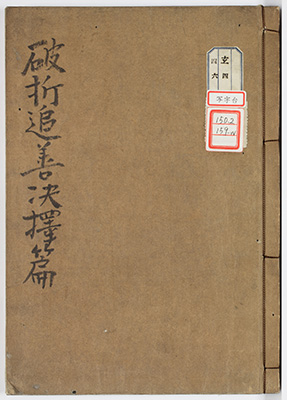 破折追善决擇篇
空四
四六
写字台
1502
159-W